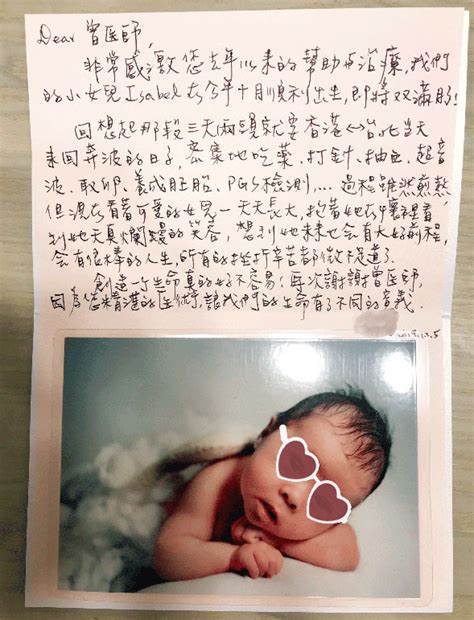 Dear 曾医師,
非常感激您去年以来的幫助与治療,我們
的小女兒Isabel在今年十月順利出生,即將双滿月!
回想起那段三天兩頭就要香港↔台北当天
来回奔波的日子,密集地吃藥、打針、抽血、超音
波、取卵、養成胚胎、PGS檢測... 過程雖然煎熬
但現在看著可愛的女兒一天天長大,抱著她在懷裡看
到她天真爛漫的笑容,想到她未来也会有大好前程,
会有很棒的人生,所有的挫折辛苦都微不足道了.
創造一个生命真的好不容易!再次謝謝曾医師,
因為您精湛的医術讓我們的生命有了不同的意義.
12.5